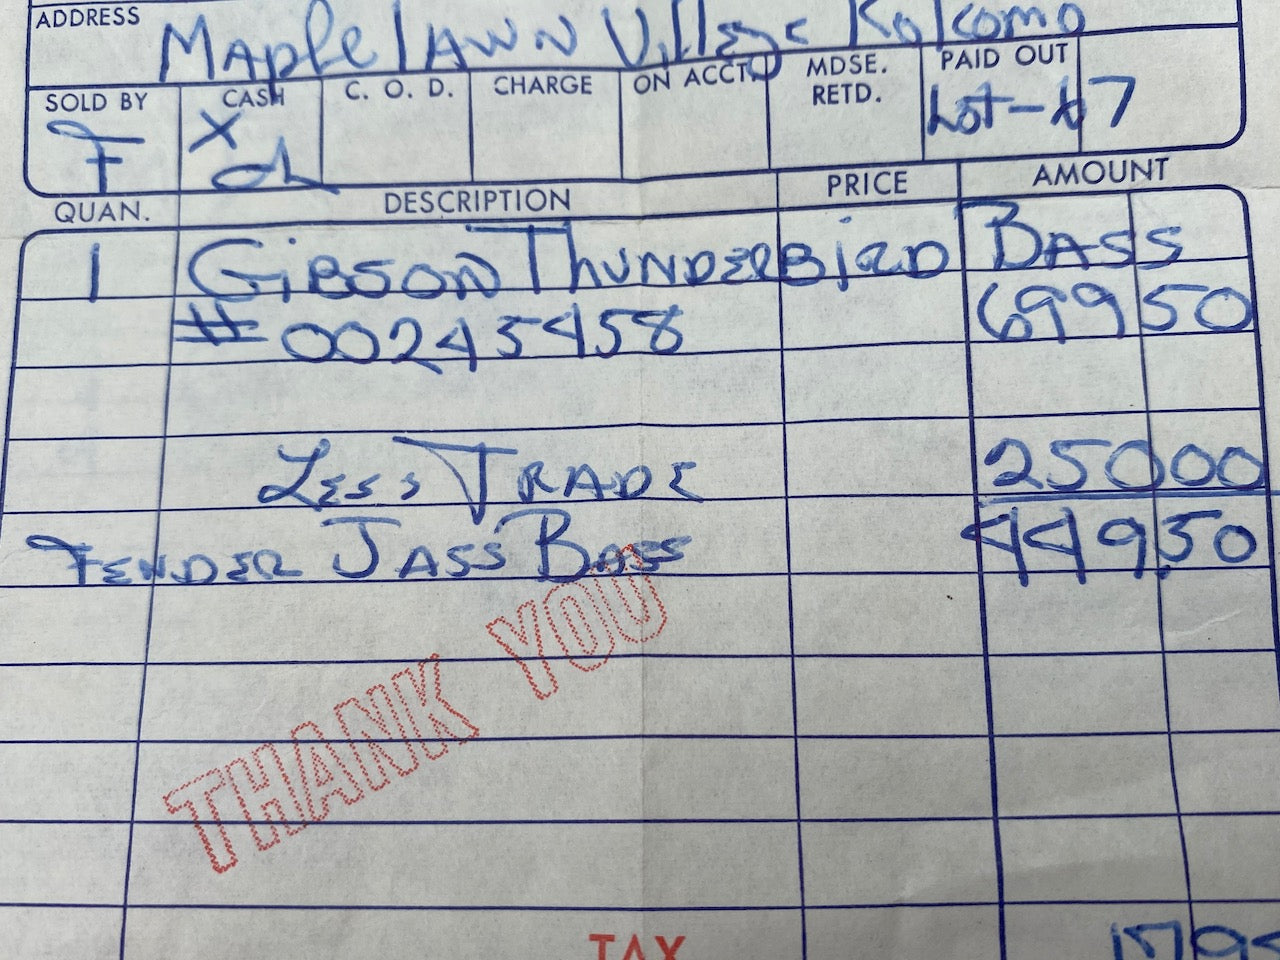 ADDRESS Maplelawn Village Kokomo
SOLD BY CASH C. O. D. CHARGE ON ACCT. MDSE. RETD. PAID OUT
F X Lot-67
QUAN. DESCRIPTION PRICE AMOUNT
1 Gibson Thunderbird Bass
#00245458 699 50
Less Trade 250 00
Fender Jass Bass 449.50
THANK YOU
TAX 17 9